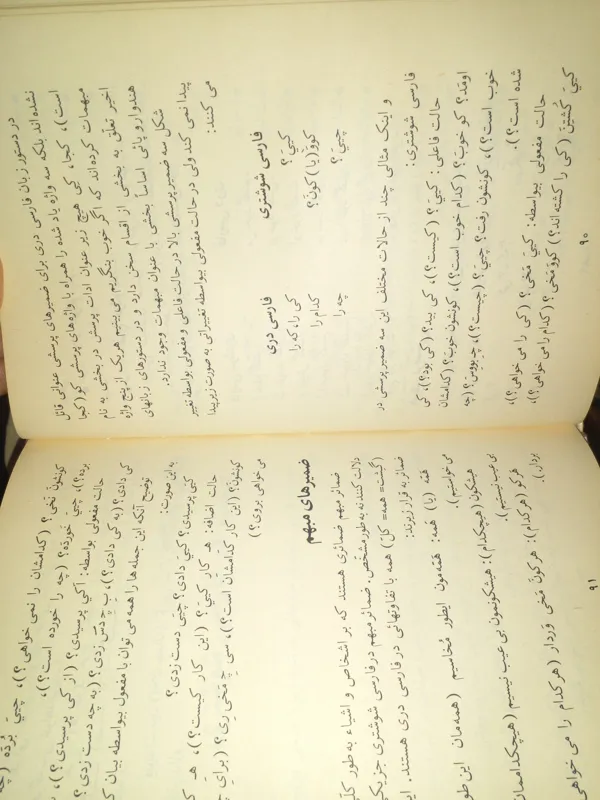 در دستور زبان فارسی دری برای ضمیرهای پرسشی عنوانی قائل
نشده‌اند بلکه سه واژه یاد شده را همراه با واژه‌های پرسشی کو (کجا
است)، کجا، کی هیچ زیر عنوان ادات پرسش در بخشی به نام
مبهمات کرده‌اند که اگر خوب بنگریم می‌بینیم هریک از پنج واژه
اخیر تعلق به بخشی از اقسام سخن دارد و در دستورهای زبانهای
هندواروپائی اساساً بخشی با عنوان مبهمات وجود ندارد.
شکل سه ضمیر پرسشی بالا در حالت فاعلی و مفعولی بواسطه تغییر
پیدا نمی‌کند ولی در حالت مفعولی بیواسطه تغییراتی به صورت زیر پیدا
می‌کنند:
فارسی دری
فارسی شوشتری
کی را، که را
کییَ؟
کدام را
کوو (یا) کونَ؟
چه را
چییَ؟
و اینک مثالی چند از حالات مختلف این سه ضمیر پرسشی در
فارسی شوشتری:
حالت فاعلی: کییَ؟ (کیست؟)، کی بید؟ (کی بود؟)، کی
اومَد؟ کو خوبَ؟ (کدام خوب است؟)، کونشون خوبَ؟ (کدامشان
خوب است؟)، کونشون رفت؟ چییَ؟ (چیست؟)، چه بووس؟ (چه
شده است؟).
حالت مفعولی بیواسطه: کییَ مَخی؟ (کی را می‌خواهی؟)،
کییَ کُشتِنَ (کی را کشته‌اند؟) کوونَ مَخی؟ (کدام را می‌خواهی؟)،
۹۰
کونشونَ نَخی؟ (کدامشان را نمی خواهی؟)، چییَ بُردَه (چه
بُرده؟)، چییَ خوردَه؟ (چه را خورده است؟).
حالت مفعولی بواسطه: اَکی پرسیدی؟ (از کی پرسیدی؟)،
کی دادی؟ (به کی دادی؟)، بِ چِ دَس زدی؟ (به چه دست زدی؟)
توضیح آنکه این جمله‌ها را همه می‌توان با مفعول بیواسطه بیان
به این صورت:
کییَ پرسیدی؟ کییَ دادی؟ چییَ دست زدی؟
حالت اضافه: هـ کارِ کییَ؟ (این کار کیست؟)، هـ
کونشونَ؟ (این کار کدامشان است؟)، سیِ چِ مَخی ری؟ (برای
می‌خواهی بروی؟)
ضمیرهای مبهم
ضمائر مبهم ضمائری هستند که بر اشخاص و اشیاء به طور
دلالت کنند نه به طور مشخص. ضمائر مبهم در فارسی شوشتری جز یکی
(گیشت = همه = کل) همه با تفاوتهائی در فارسی دری هستند.
ضمائر به قرار زیرند:
هَمَه (یا) همه: هَمَه‌مون ایطور مُخاسیم (همه‌مان این
می‌خواستیم).
هیشکون (هیچکدام): هیشکونمون بی عیب نیسیم (هیچکداممان
بی عیب نیستیم).
هرکو (هرکدام): هر کونَ مَخی وَردار (هر کدام را می
بردار).
۹۱